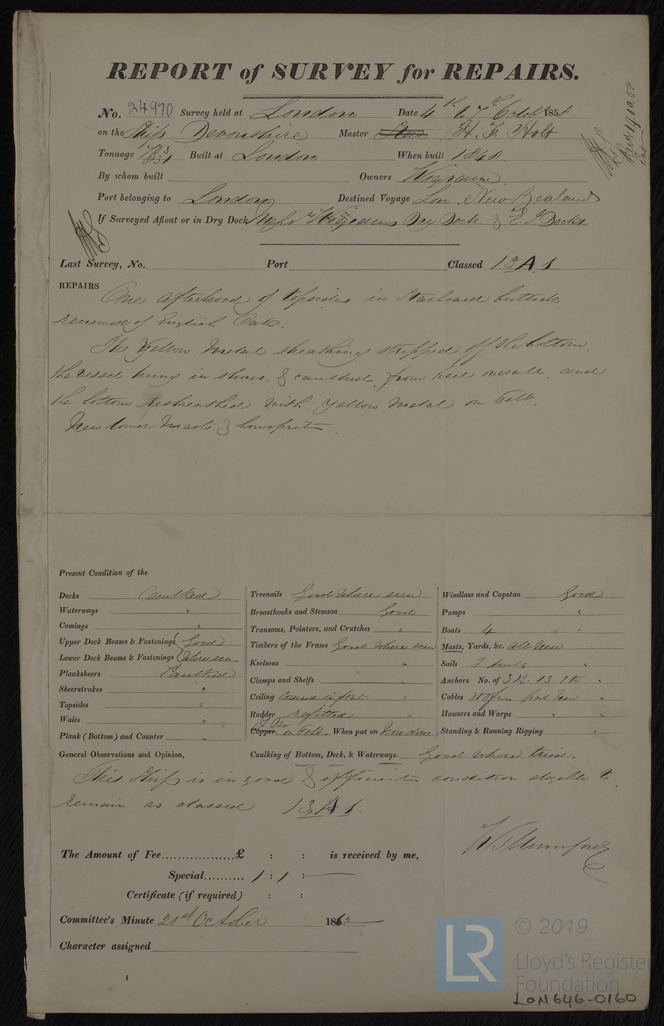 REPORT of SURVEY for REPAIRS.
No. 24970 Survey held at London Date 4th & 7th October 1858
on the Ship Devonshire Master H. F. Holt
Tonnage Built at London When built 1848
By whom built Owners Wigram
Port belonging to London Destined Voyage Lon. New Zealand
If Surveyed Afloat or in Dry Dock Messrs Wigrams Dry Dock & E. I. Docks
Last Survey, No. Port Classed 13 A 1
REPAIRS One afterhood of topsides in Starboard buttock
renewed of English Oak.
The Yellow Metal sheathing stripped off the bottom
the vessel hung in shores & caulked from keel and
the bottom resheathed with Yellow Metal on Felt.
New lower Masts & bowsprit
Present Condition of the
Decks Caulked
Waterways "
Comings "
Upper Deck Beams & Fastenings Good
Lower Deck Beams & Fastenings where seen
Planksheers Caulked
Sheerstrakes "
Topsides "
Wales "
Plank (Bottom) and Counter "
Treenails Good where seen
Breasthooks and Stemson Good
Transoms, Pointers, and Crutches "
Timbers of the Frame Good where seen
Keelsons "
Clamps and Shelfs "
Ceiling
Rudder refitted
Copper Y M on Felt When put on Now done
Caulking of Bottom, Deck, & Waterways. Good where tried.
Windlass and Capstan Good
Pumps "
Boats 4 "
Masts, Yards, &c. all New
Sails 2 suits "
Anchors No. of 3 B. 1 S. 1 K. "
Cables 300 fm "
Hawsers and Warps "
Standing & Running Rigging "
General Observations and Opinion,
This Ship is in good & efficient condition eligible to
remain as classed 13 A 1.
The Amount of Fee £ : : is received by me,
Special 1 : 1 : —
Certificate (if required) : :
Committee's Minute 21st October 186
Character assigned
1
LR
© 2019
Lloyd's Register
Foundation
LON646-0160